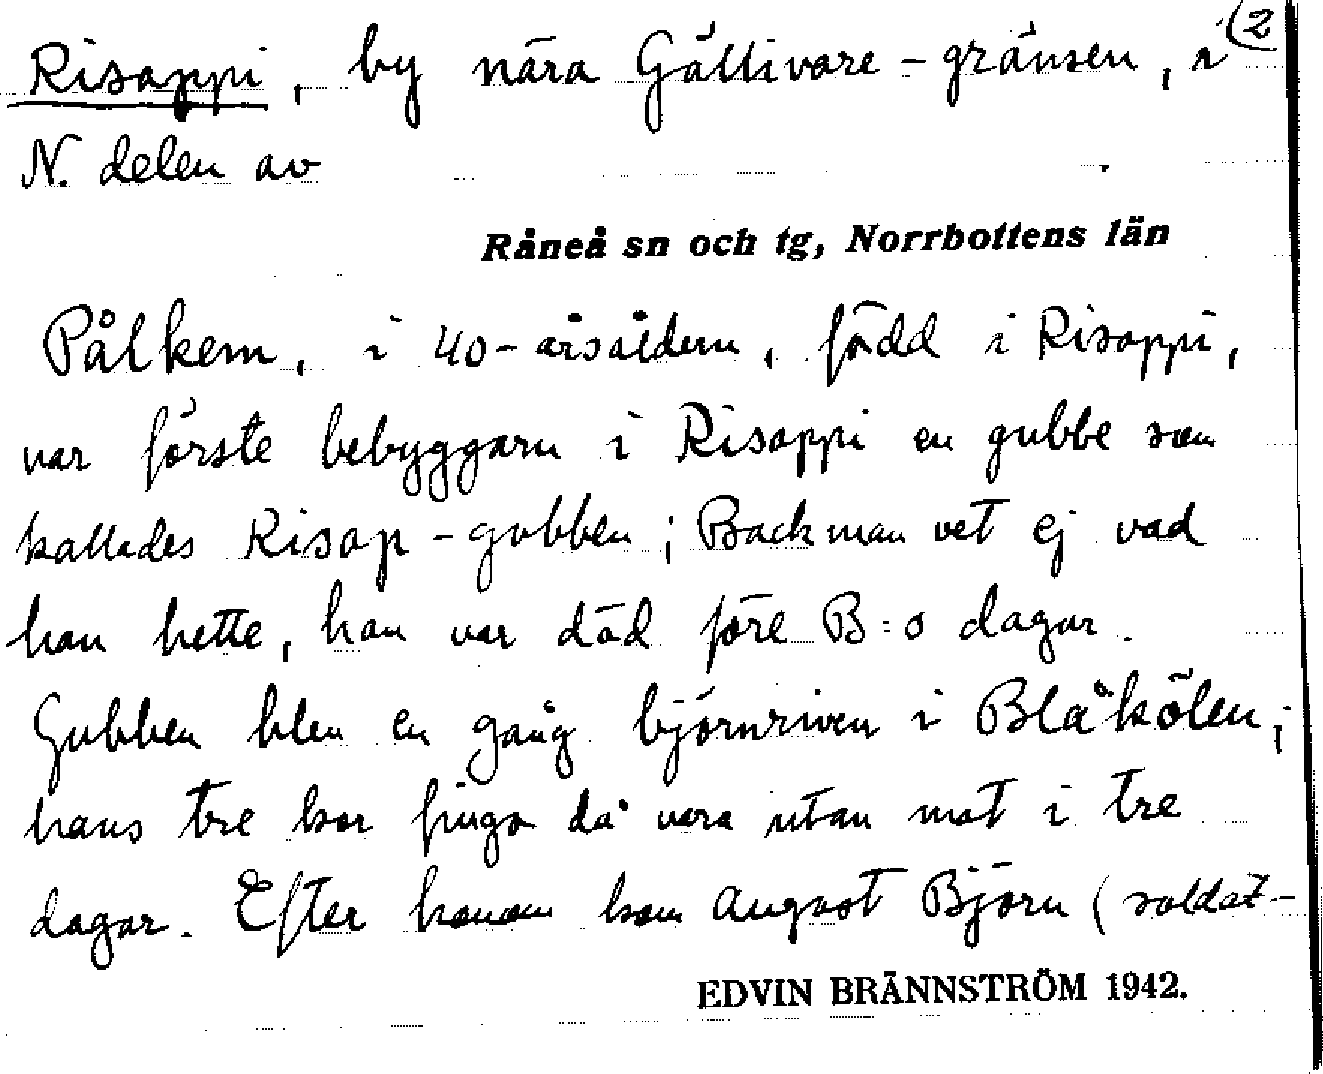 (2
Risappi, by nära Gällivare-gränsen, i
N. delen av
Råneå sn och tg, Norrbottens län
Pålkem, i 40-årsåldern, född i Risappi,
var förste bebyggarn i Risappi en gubbe som
kallades Risap-gubben; Backman vet ej vad
han hette, han var död före B:s dagar.
Gubben blev en gång björnriven i Blåkölen;
hans tre kor fingo då vara utan mat i tre
dagar. Efter honom kom August Björn (soldat-
EDVIN BRÄNNSTRÖM 1942.